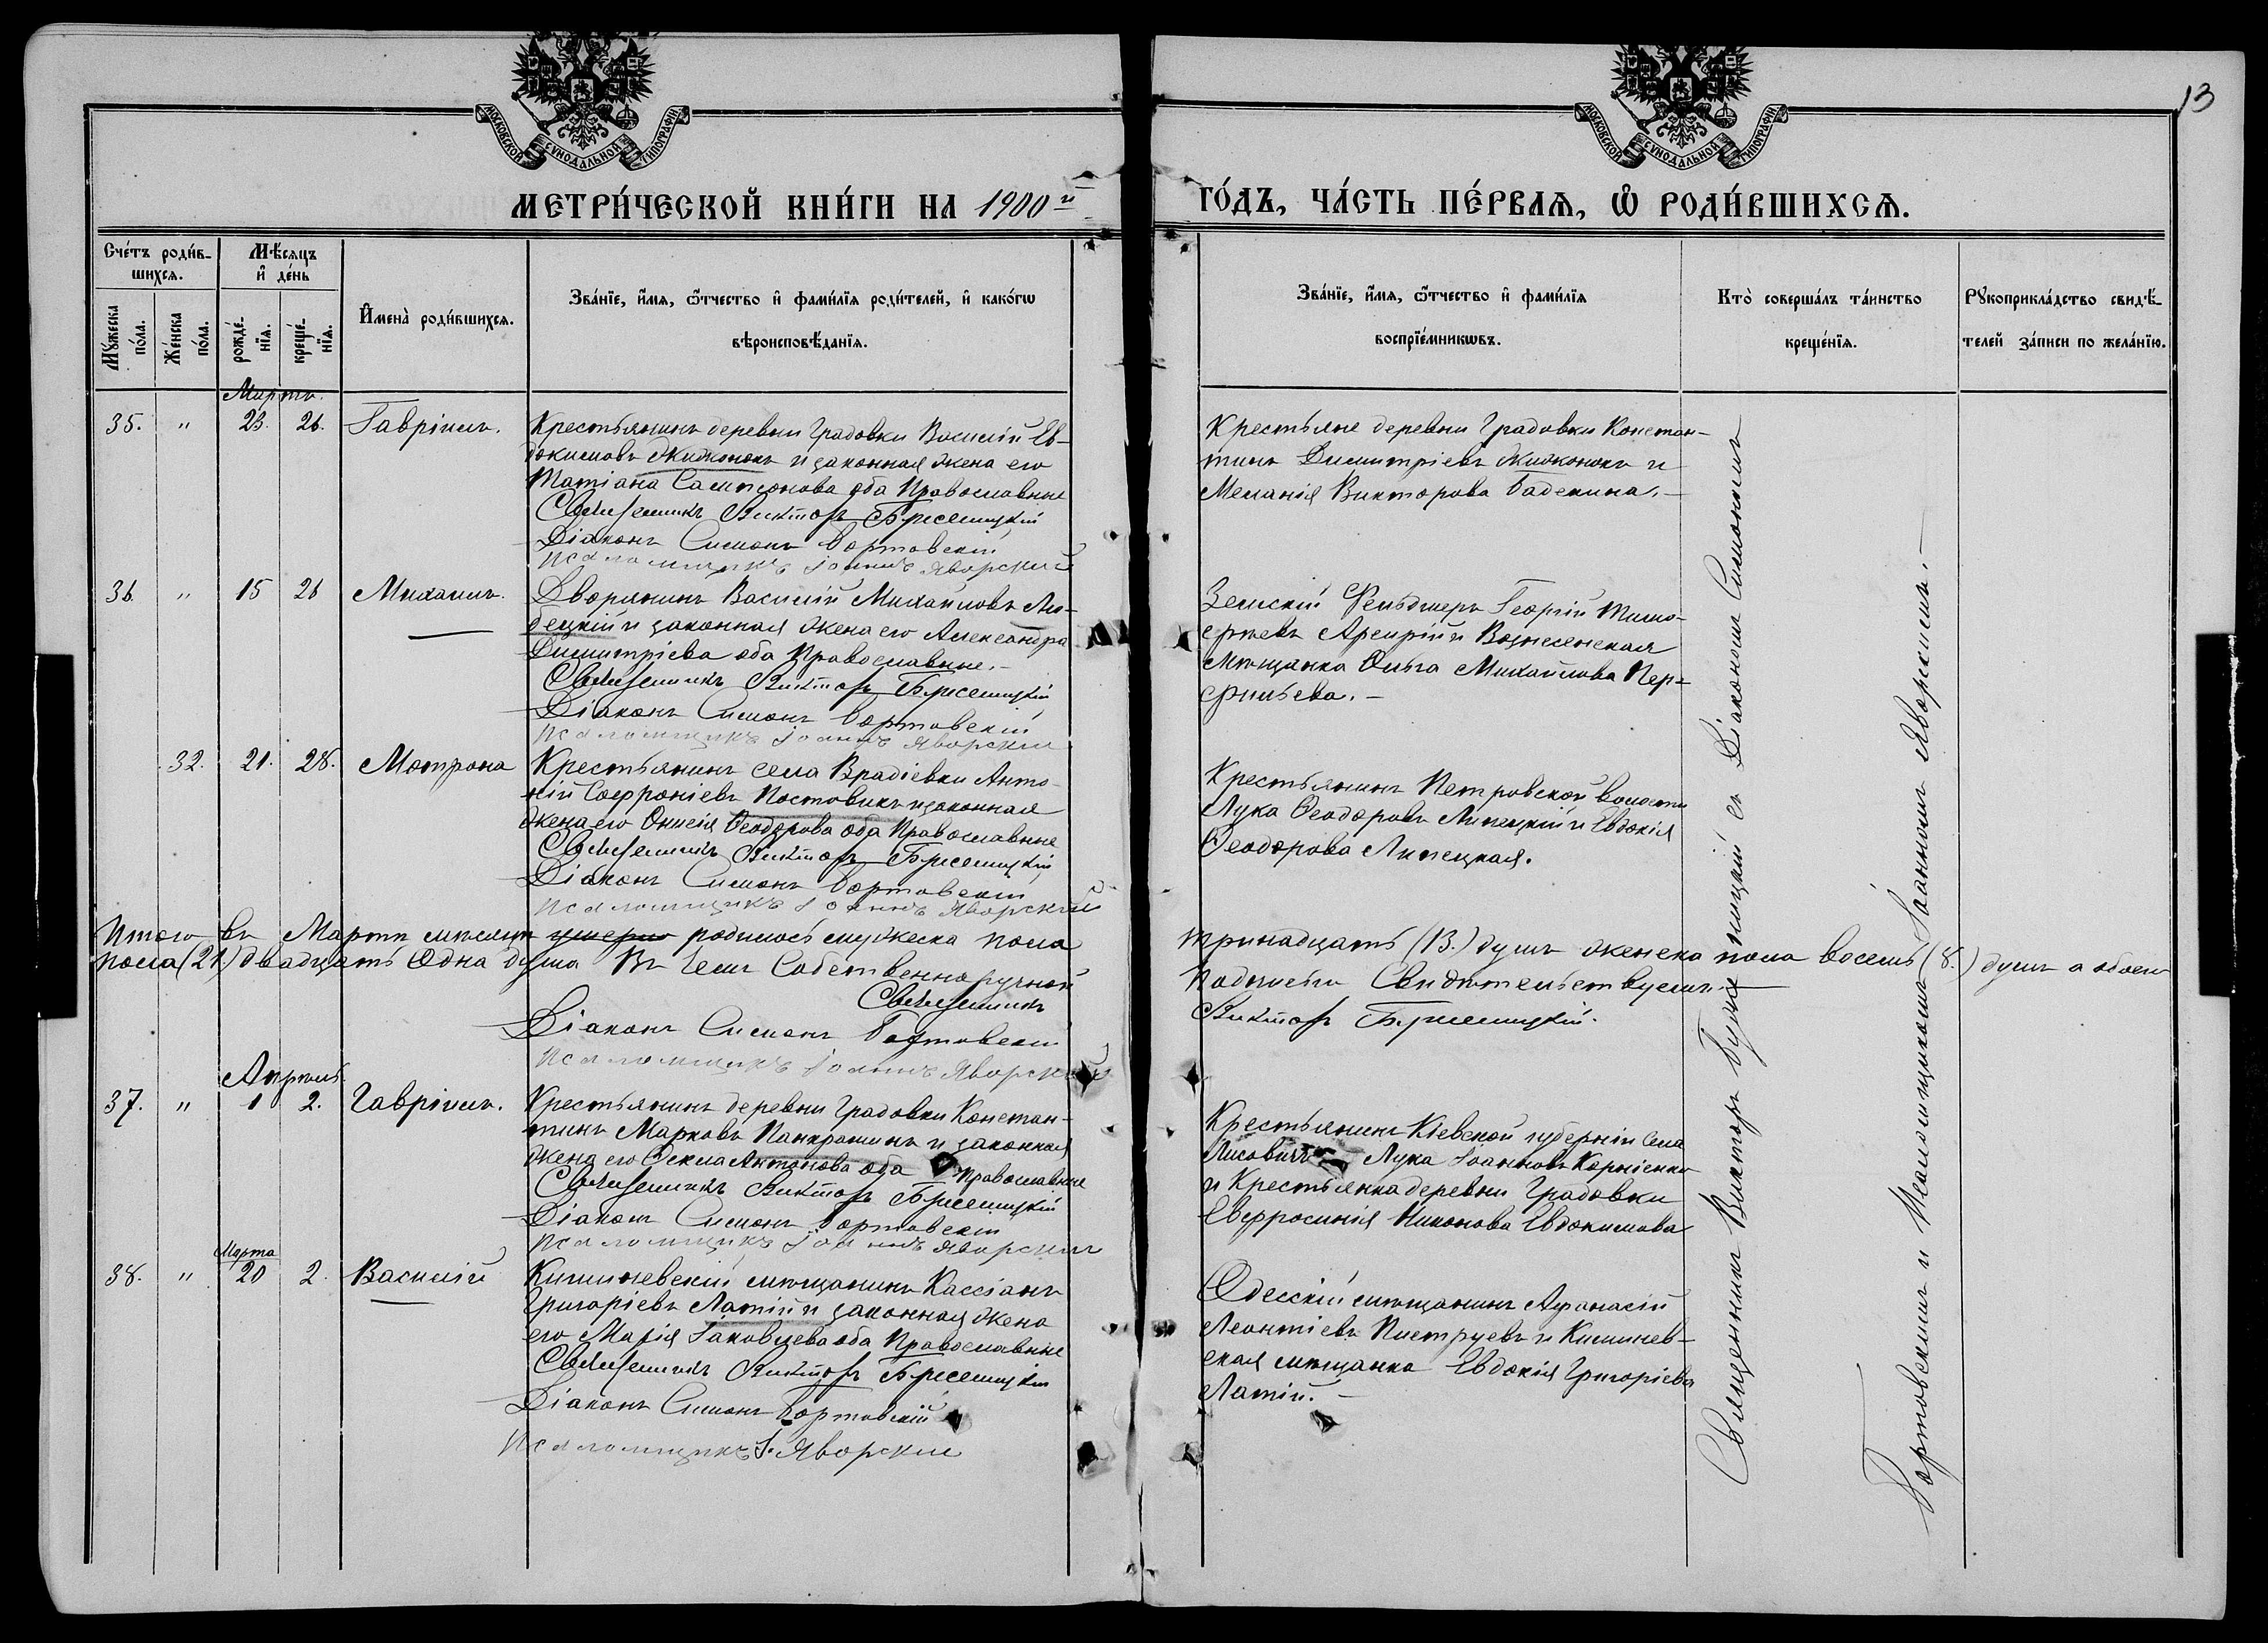 13
МОСКОВСКОЙ СѴНОДАЛЬНОЙ ТИПОГРАФІИ
МОСКОВСКОЙ СѴНОДАЛЬНОЙ ТИПОГРАФІИ
МЕТРИ́ЧЕСКОЙ КНИ́ГИ НА 1900й
ГО́ДЪ, ЧА́СТЬ ПЕ́РВАѦ, Ѿ РОДИ́ВШИХСѦ.
Сче́тъ роди́в-
шихсѧ.
Мѣсѧцъ
и҆ де́нь
Мꙋ́жеска
по́ла.
Же́нска
по́ла.
рожде́-
нїѧ.
креще́-
нїѧ.
И҆мена̀ роди́вшихсѧ.
Зва́нїе, и҆́мѧ, ѻ҆́тчество и҆ фами́лїѧ роди́телей, и҆ како́гѡ
вѣроисповѣ́данїѧ.
Зва́нїе, и҆́мѧ, ѻ҆́тчество и҆ фами́лїѧ
воспрїе́мникѡвъ.
Кто̀ соверша́лъ та́инство
креще́нїѧ.
Рꙋкоприкла́дство свидѣ́-
телей за́писи по жела́нїю.
Мартъ.
35. " 23. 26. Гавріилъ.
Крестьянинъ деревни Градовки Василій Ев-
докимовъ Жидконокъ и законная жена его
Татіана Сампсонова оба Православные
Священникъ Викторъ
Діаконъ Симонъ Бортовскій
Псаломщикъ Іоаннъ Яворскій
Крестьяне деревни Градовки Констан-
тинъ Димитріевъ Жидконокъ и
Меланія Викторова Баделина.
36. " 15 26 Михаилъ.
Дворянинъ Василій Михайловъ
и законная жена его Александра
Димитріева оба Православные.
Священникъ Викторъ
Діаконъ Симонъ Бортовскій
Псаломщикъ Іоаннъ Яворскій
Земскій Фельдшеръ Георгій Тимо-
феевъ и Вознесенская
мѣщанка Ольга Михайлова Пер-
фильева.
32. 21. 28. Мотрона
Крестьянинъ села Врадіевки Анто-
ній Софроніевъ Постовикъ и законная
жена его Онисія Ѳеодорова оба Православные
Священникъ Викторъ
Діаконъ Симонъ Бортовскій
Псаломщикъ Іоаннъ Яворскій
Крестьянинъ Петровской волости
Лука Ѳеодоровъ Липецкій и Евдокія
Ѳеодорова Липецкая.
Итого въ Мартѣ мѣсяцѣ умерло родилось мужеска пола
тринадцать (13.) душъ женска пола восемь (8.) душъ а обоего
пола (21) двадцать одна душа Въ чемъ Собственноручной
подписью Свидѣтельствуемъ
Священникъ
Викторъ
Діаконъ Симонъ Бортовскій
Псаломщикъ Іоаннъ Яворскій
Апрѣль.
37. " 1 2. Гавріилъ.
Крестьянинъ деревни Градовки Констан-
тинъ Марковъ Панкратинъ и законная
жена его Ѳекла Антонова оба Православные
Священникъ Викторъ
Діаконъ Симонъ Бортовскій
Псаломщикъ Іоаннъ Яворскій
Крестьянинъ Кіевской губерніи села
Лисовичъ Лука Іоанновъ Корніенко
и Крестьянка деревни Градовки
Евфросинія Никонова Евдокимова
Марта
38. " 20 2. Василій
Кишиневскій мѣщанинъ Кассіанъ
Григоріевъ Латій и законная жена
его Марія Іаковцева оба Православные
Священникъ Викторъ
Діаконъ Симонъ Бортовскій
Псаломщикъ І. Яворскій
Одесскій мѣщанинъ Афанасій
Леонтіевъ Пиструевъ и Кишинев-
ская мѣщанка Евдокія Григоріева
Латій.
Священникъ Викторъ съ Діакономъ Симономъ
Бортовскимъ и Псаломщикомъ Іоанномъ Яворскимъ.